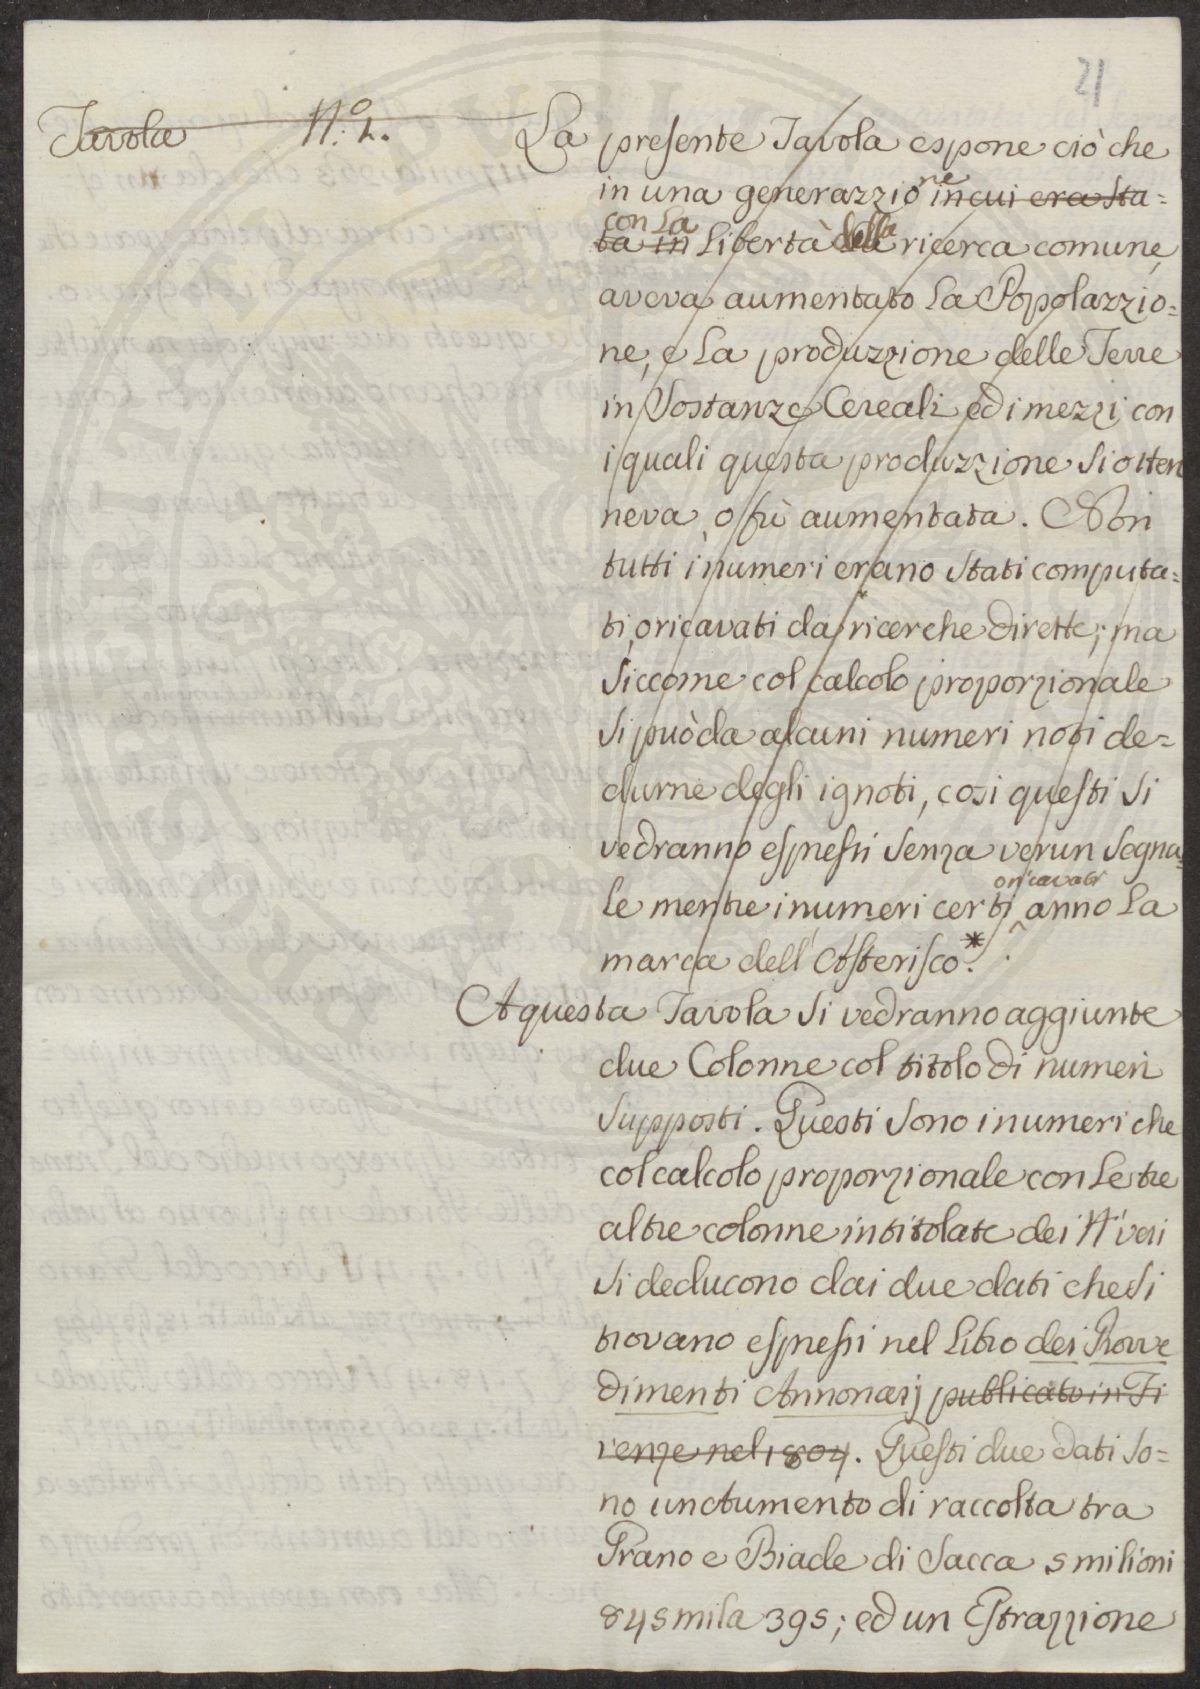 21
Tavola N.º 2. La presente Tavola espone ciò che
in una generazzione in cui era sta=
ta in con la Libertà della ricerca comune,
aveva aumentato la Popolazzio=
ne, e la produzzione delle Terre
in Sostanze Cereali ed i mezzi con
i quali questa produzzione si otten
neva, o fù aumentata. Non
tutti i numeri erano stati computa=
ti, o ricavati da ricerche dirette; ma
siccome col calcolo proporzionale
si può da alcuni numeri noti de=
durne degli ignoti, così questi si
vedranno espressi senza verun segna=
le mentre i numeri certi o ricavati anno la
marca dell'Asterisco *.
A questa Tavola si vedranno aggiunte
due Colonne col titolo di numeri
supposti. Questi sono i numeri che
col calcolo proporzionale con le tre
altre colonne intitolate dei N.i veri
si deducono dai due dati che si
trovano espressi nel Libro dei Provve
dimenti Annonarij publicato in Fi
renze nel 1804. Questi due dati so=
no un Aumento di raccolta tra
Grano e Biade di Sacca 5 milioni
845 mila 395; ed un Estrazzione